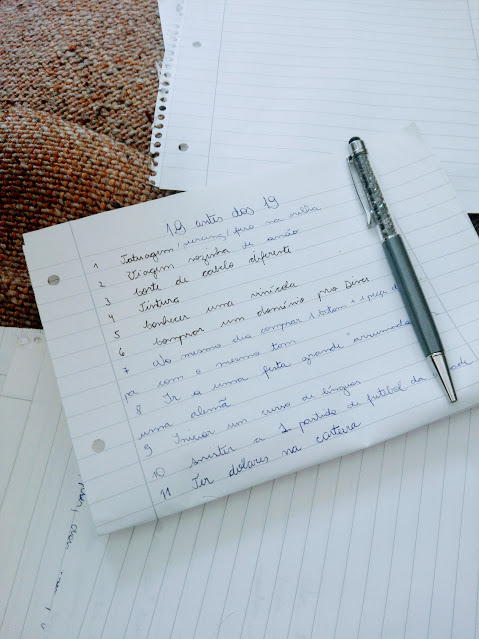 19 antes dos 19
1 Tatuagem/piercing/furo na orelha
2 Viagem sozinha de avião
3 Corte de cabelo diferente
4 Tintura
5 Conhecer uma vinícola
6 Comprar um domínio pro
7 No mesmo dia comprar 1 batom + 1 peça de
pa com o mesmo tom
8 Ir a uma festa grande arrumada
uma alemã
9 Iniciar um curso de línguas
10 Assistir a 1 partida de futebol da
11 Ter dolares na carteira